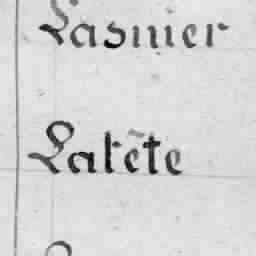 Lasnier
Latête